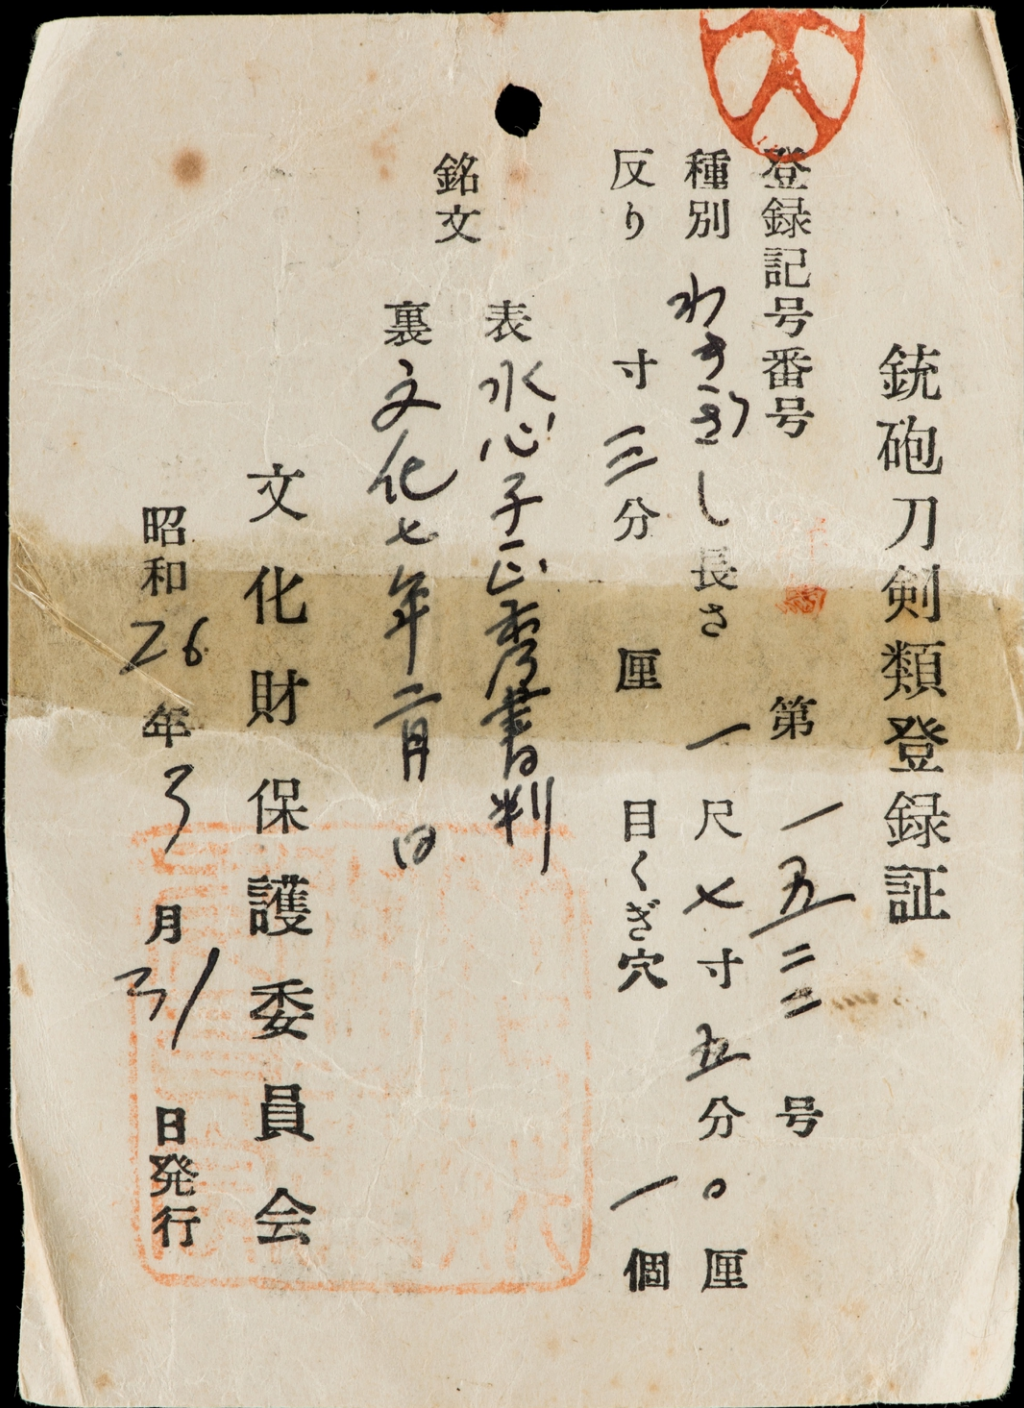 銃砲刀剣類登録証
登録記号番号 第一五二二号
種別 わきざし 長さ 一尺七寸五分〇厘
反り 寸三分 厘 目くぎ穴 一個
銘文
表 水心子正秀書判
裏 文化七年二月日
文化財保護委員会
昭和26年3月31日発行